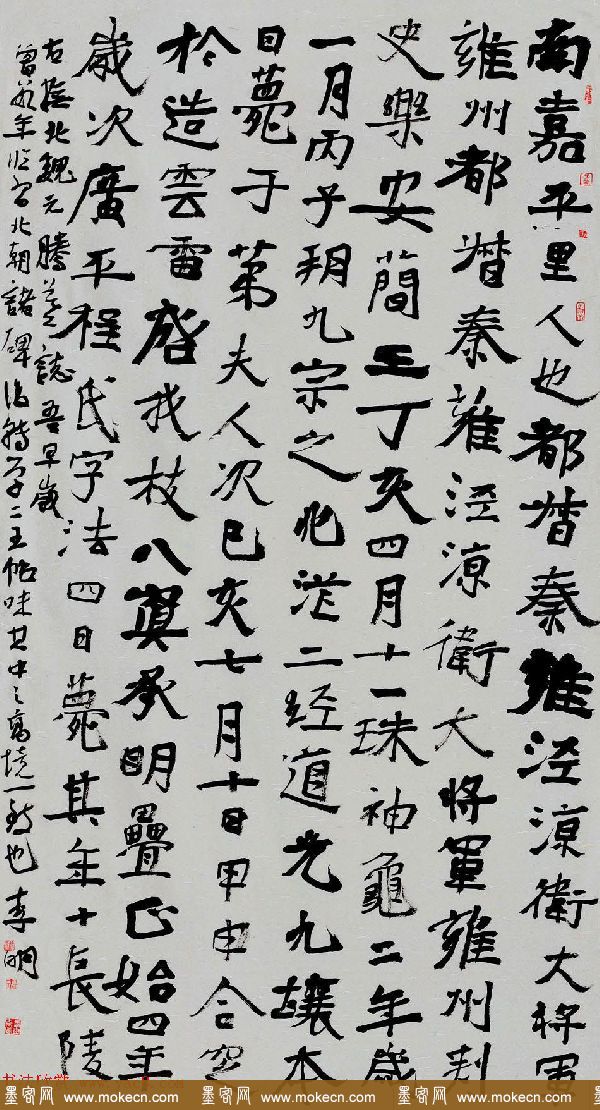 南嘉平里人也都督秦雍泾凉衛大将軍
雍州都督秦雍泾凉衛大将軍雍州刺
史樂安蕳王丁亥四月十一珠袖龜二年歲
一月丙子朔九宗之兆茫二经道光九壤本
日薨于第夫人次巳亥七月十日甲申合空
於造雲雷啓我枝八寘承明疊正始四年
歲次廣平程氏字法四日薨其年十長陵
右臨北魏元騰墓誌吾早歲
曾数年临习北朝諸碑後转学二王帖味其中之高境一致也
李明
墨客网 www.mokecn.com 墨客网 www.mokecn.com 墨客网 www.mokecn.com